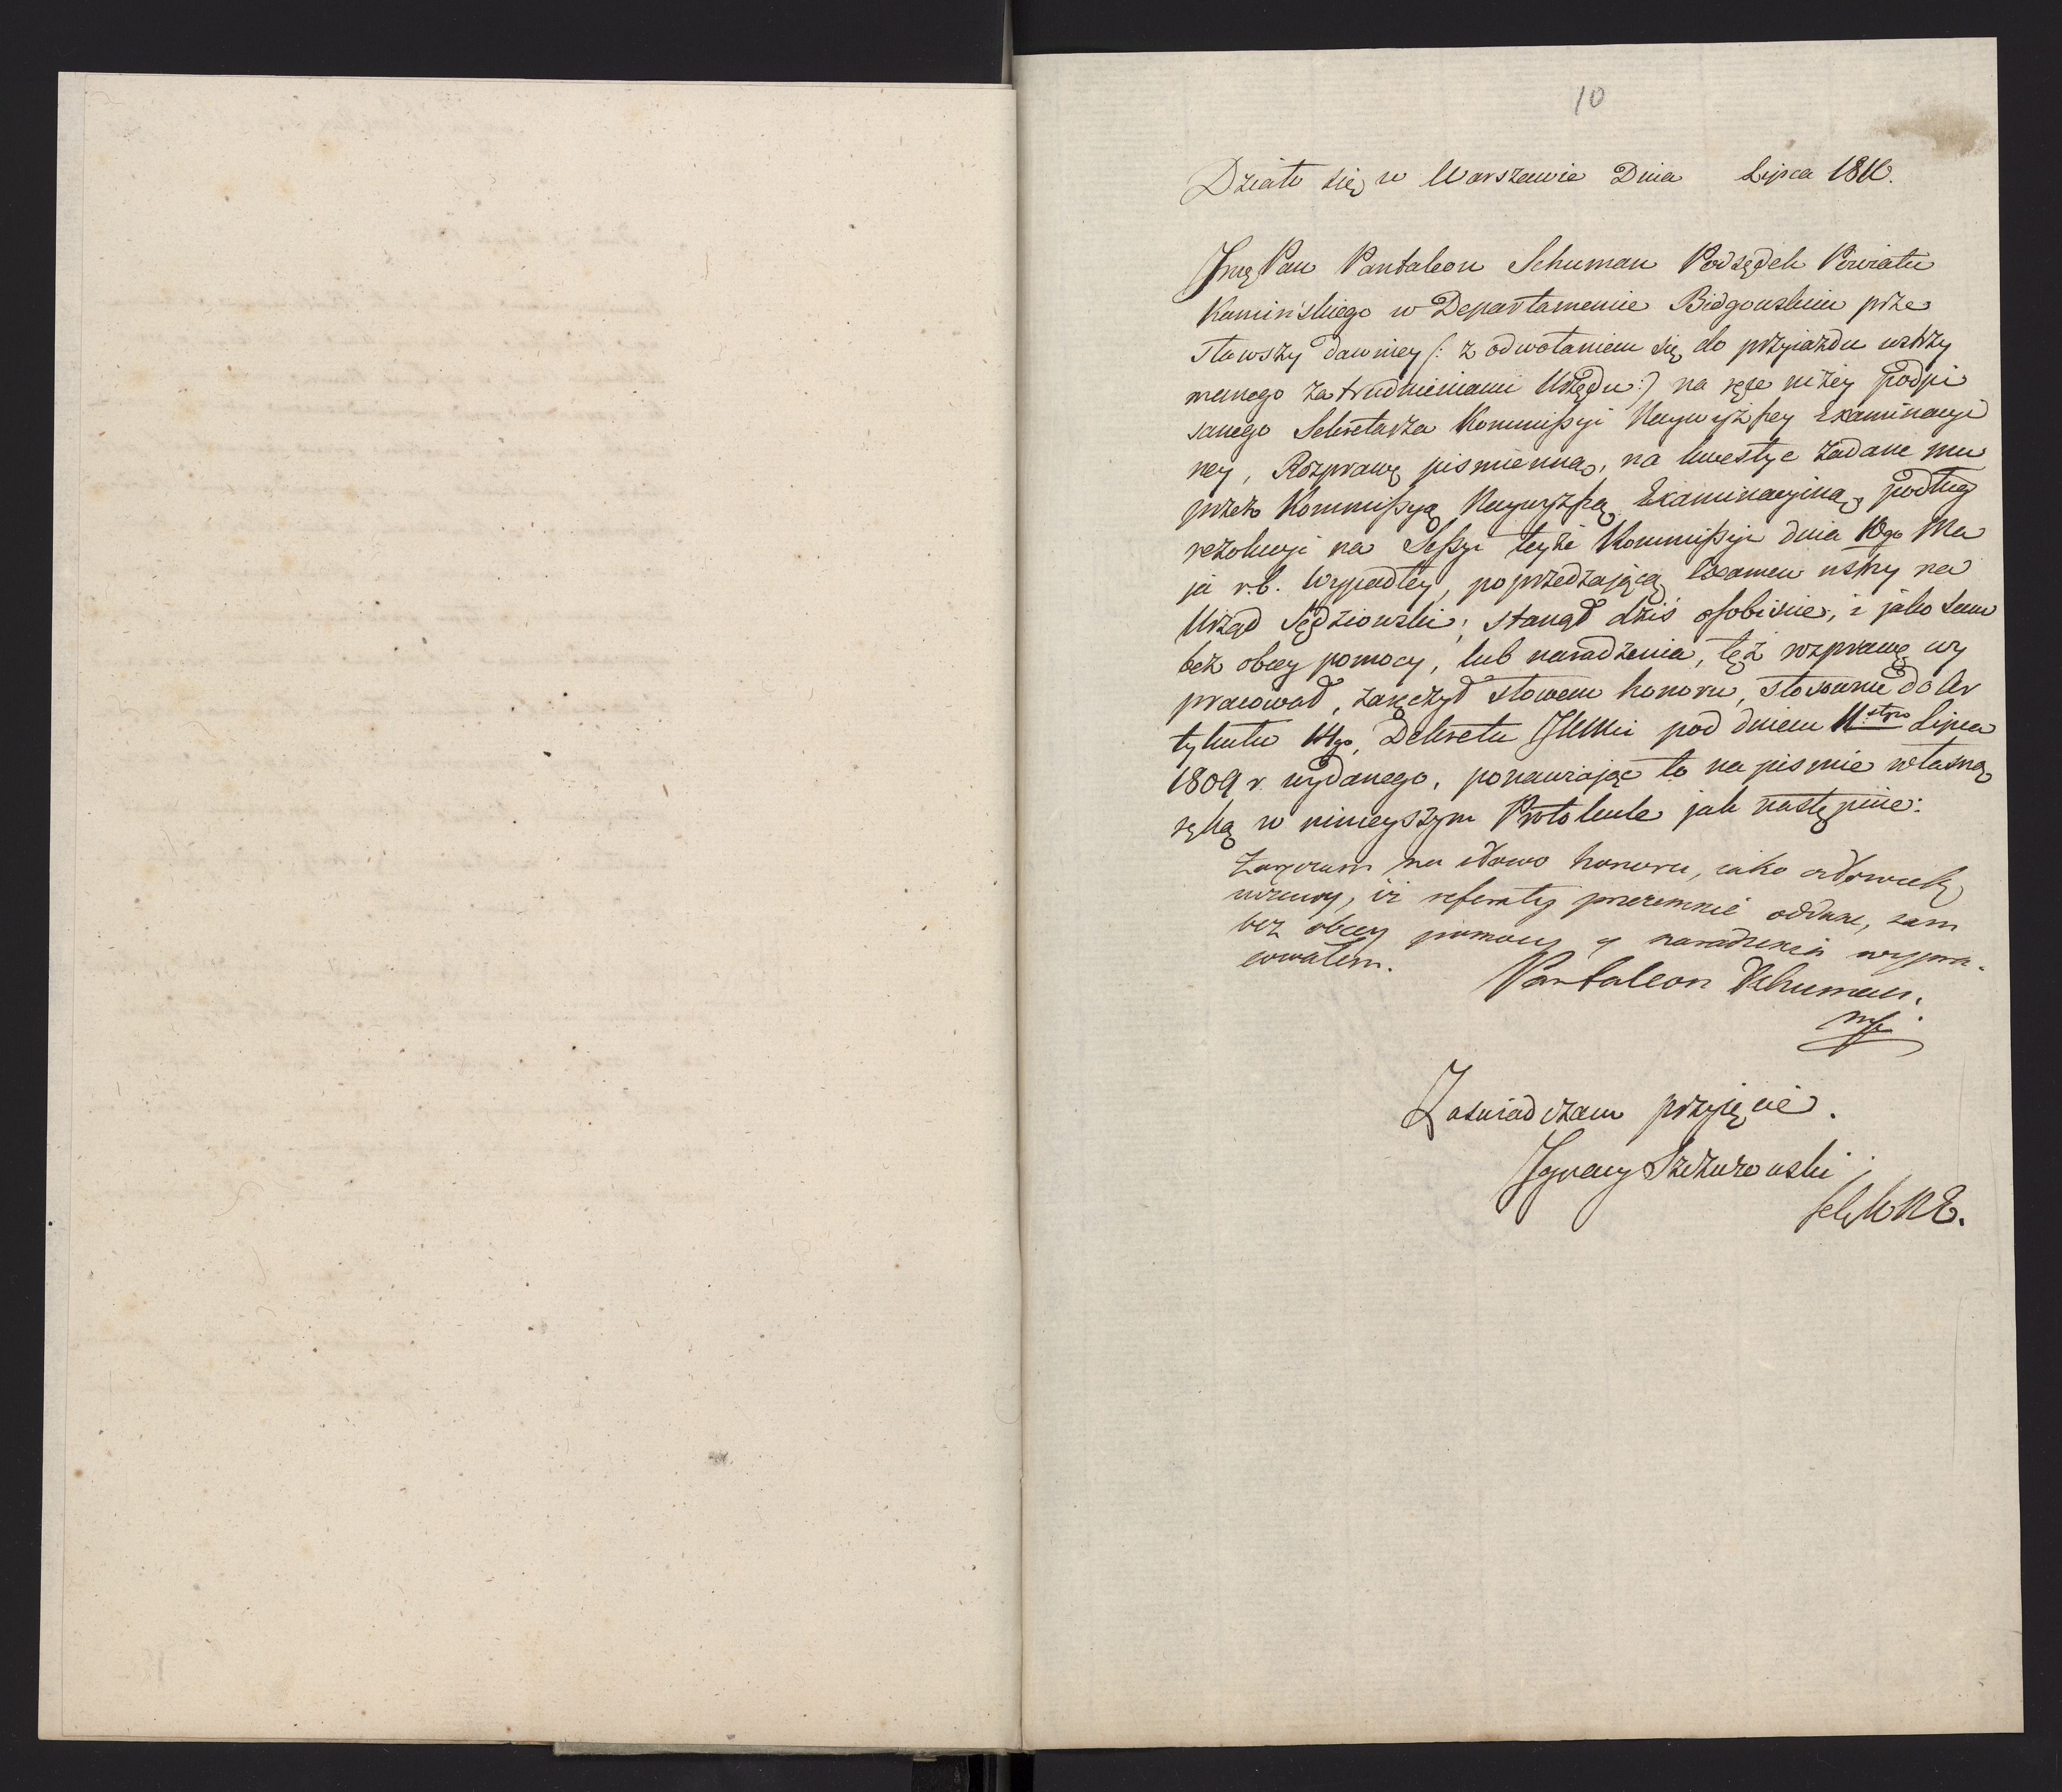 10
Działo się w Warszawie Dnia Lipca 1810.
Jmę Pan Pantaleon Schuman Podsędek Powiatu
Kamińskiego w Departamencie Bidgowskim prze
sławszy dawniey (: z odwołaniem się do przyiazdu wstrzy
manego zatrudnieniami Urzędu :) na ręce niżey podpi
sanego Sekretarza Kommißyi Naywyżßey Examinacyi
ney, Rozprawę pismienną, na kwestye zadane mu
przez Kommißyą Naywyżßą Examinacyiną, podług
rezolucyi na Seßyi teyże Kommißyi dnia 10go Ma
ja r.b. wypadłey, poprzedzającą Examen ustny na
Urząd Sędziowski; stanął dziś osobiscie, i jako sam
bez obcey pomocy, lub naradzenia, tęż rozprawę wy
pracował, zaręczył słowem honoru, stosownie do Ar
tykułu 14go, Dekretu JKMci pod dniem 11stgo Lipca
1809 r. wydanego, ponawiając to na pismie własną
ręką w ninieyszym Protokule jak następuie:
Zaręczam na słowo honoru, iako człowiek
uczciwy, iż referaty przezemnie oddane, sam
bez obcey pomocy y naradzenia wypra-
cowałem.
Pantaleon Schuman.
mp
Zaświadczam przyięcie.
Ignacy Szczurowski
Sek KNE.